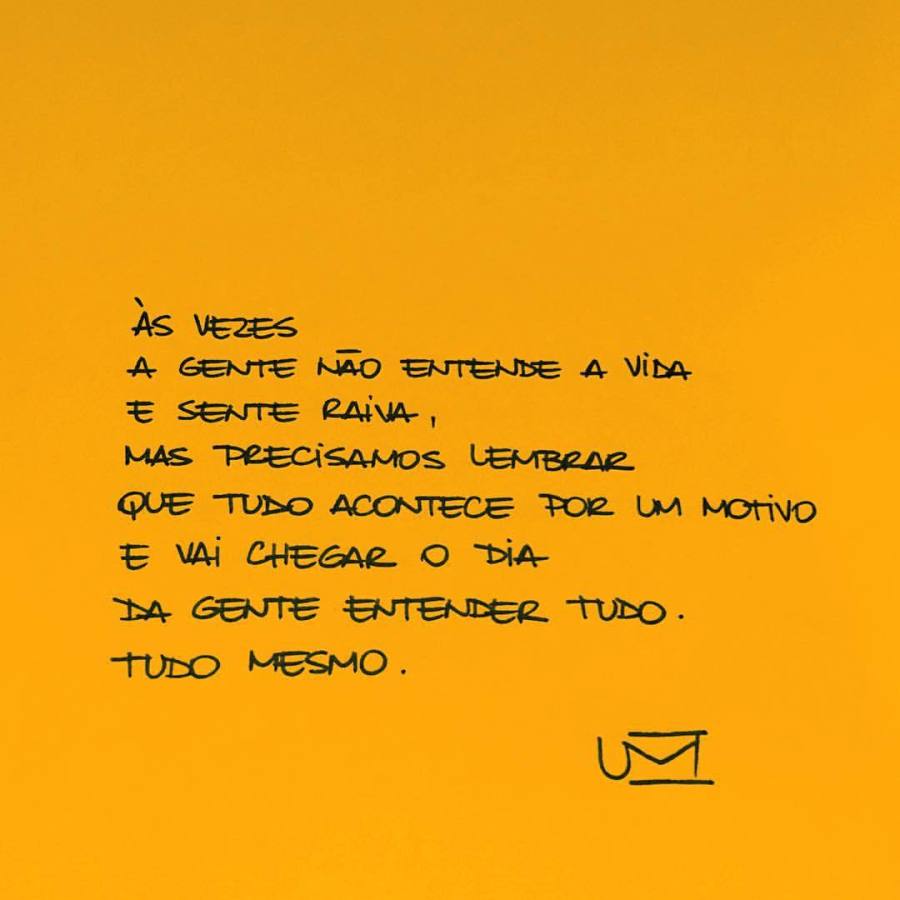 ÀS VEZES
A GENTE NÃO ENTENDE A VIDA
E SENTE RAIVA,
MAS PRECISAMOS LEMBRAR
QUE TUDO ACONTECE POR UM MOTIVO
E VAI CHEGAR O DIA
DA GENTE ENTENDER TUDO.
TUDO MESMO.